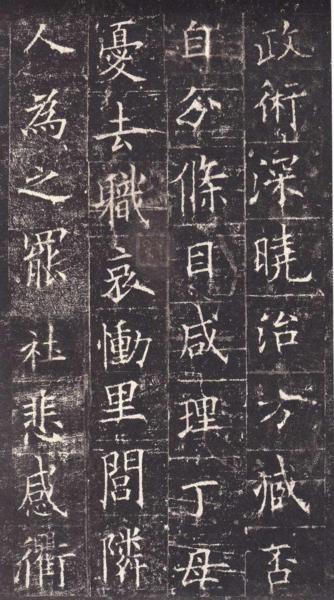 政術深曉治方臧否
自分條目咸理丁母
憂去職哀慟里閭隣
人為之罷社悲感衢